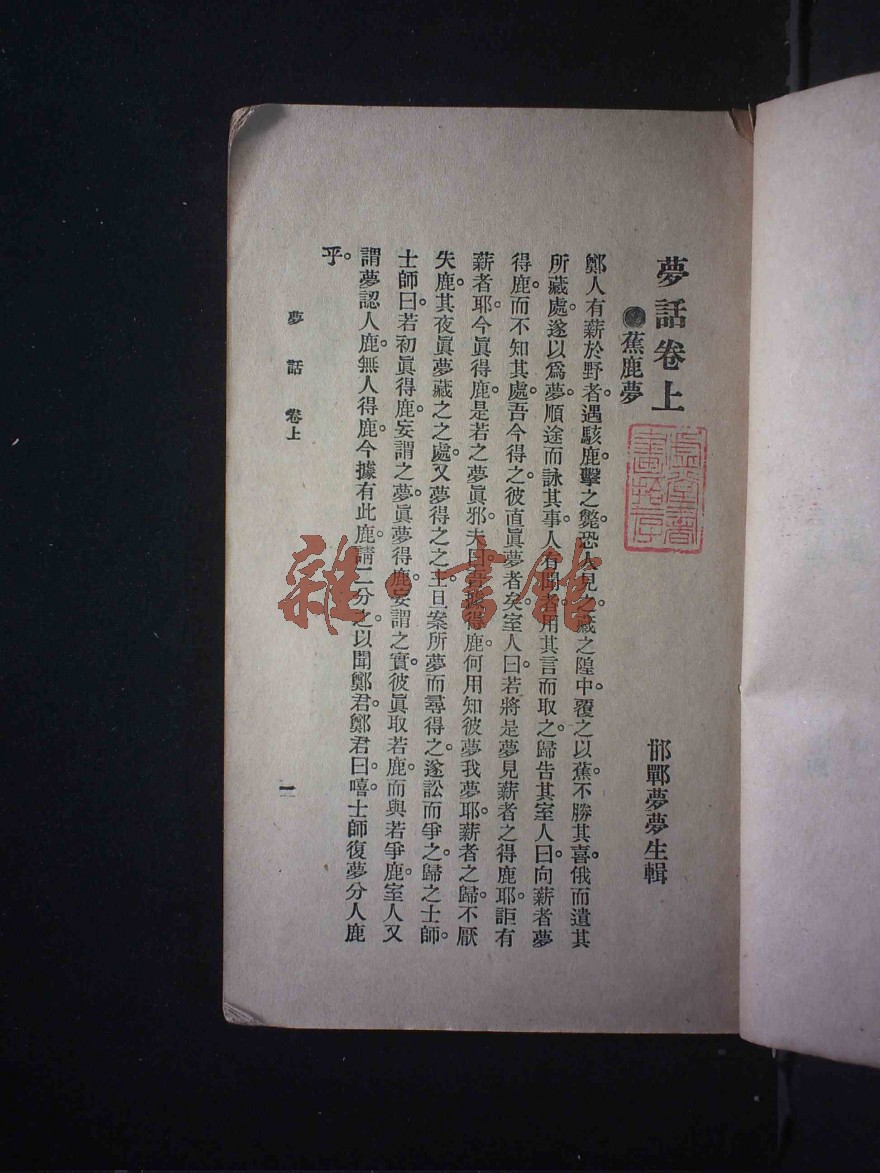 夢話卷上
邯鄲夢夢生輯
●蕉鹿夢
鄭人有薪於野者。遇駭鹿。擊之斃。恐人見之。藏之隍中。覆之以蕉。不勝其喜。俄而遺其
所藏處。遂以爲夢。順途而詠其事。人有聞者。用其言而取之。歸告其室人曰。向薪者夢
得鹿而不知其處。吾今得之。彼直眞夢者矣。室人曰。若將是夢見薪者之得鹿耶。詎有
薪者耶。今眞得鹿。是若之夢眞邪。夫曰。吾據得鹿。何用知彼夢我夢耶。薪者之歸。不厭
失鹿。其夜眞夢藏之之處。又夢得之之主。旦案所夢而尋得之。遂訟而爭之。歸之士師。
士師曰。若初眞得鹿。妄謂之夢。眞夢得鹿。妄謂之實。彼眞取若鹿。而與若爭鹿。室人又
謂夢認人鹿。無人得鹿。今據有此鹿。請二分之。以聞鄭君。鄭君曰。嘻。士師復夢分人鹿
乎。
夢話 卷上
一
雜·書館